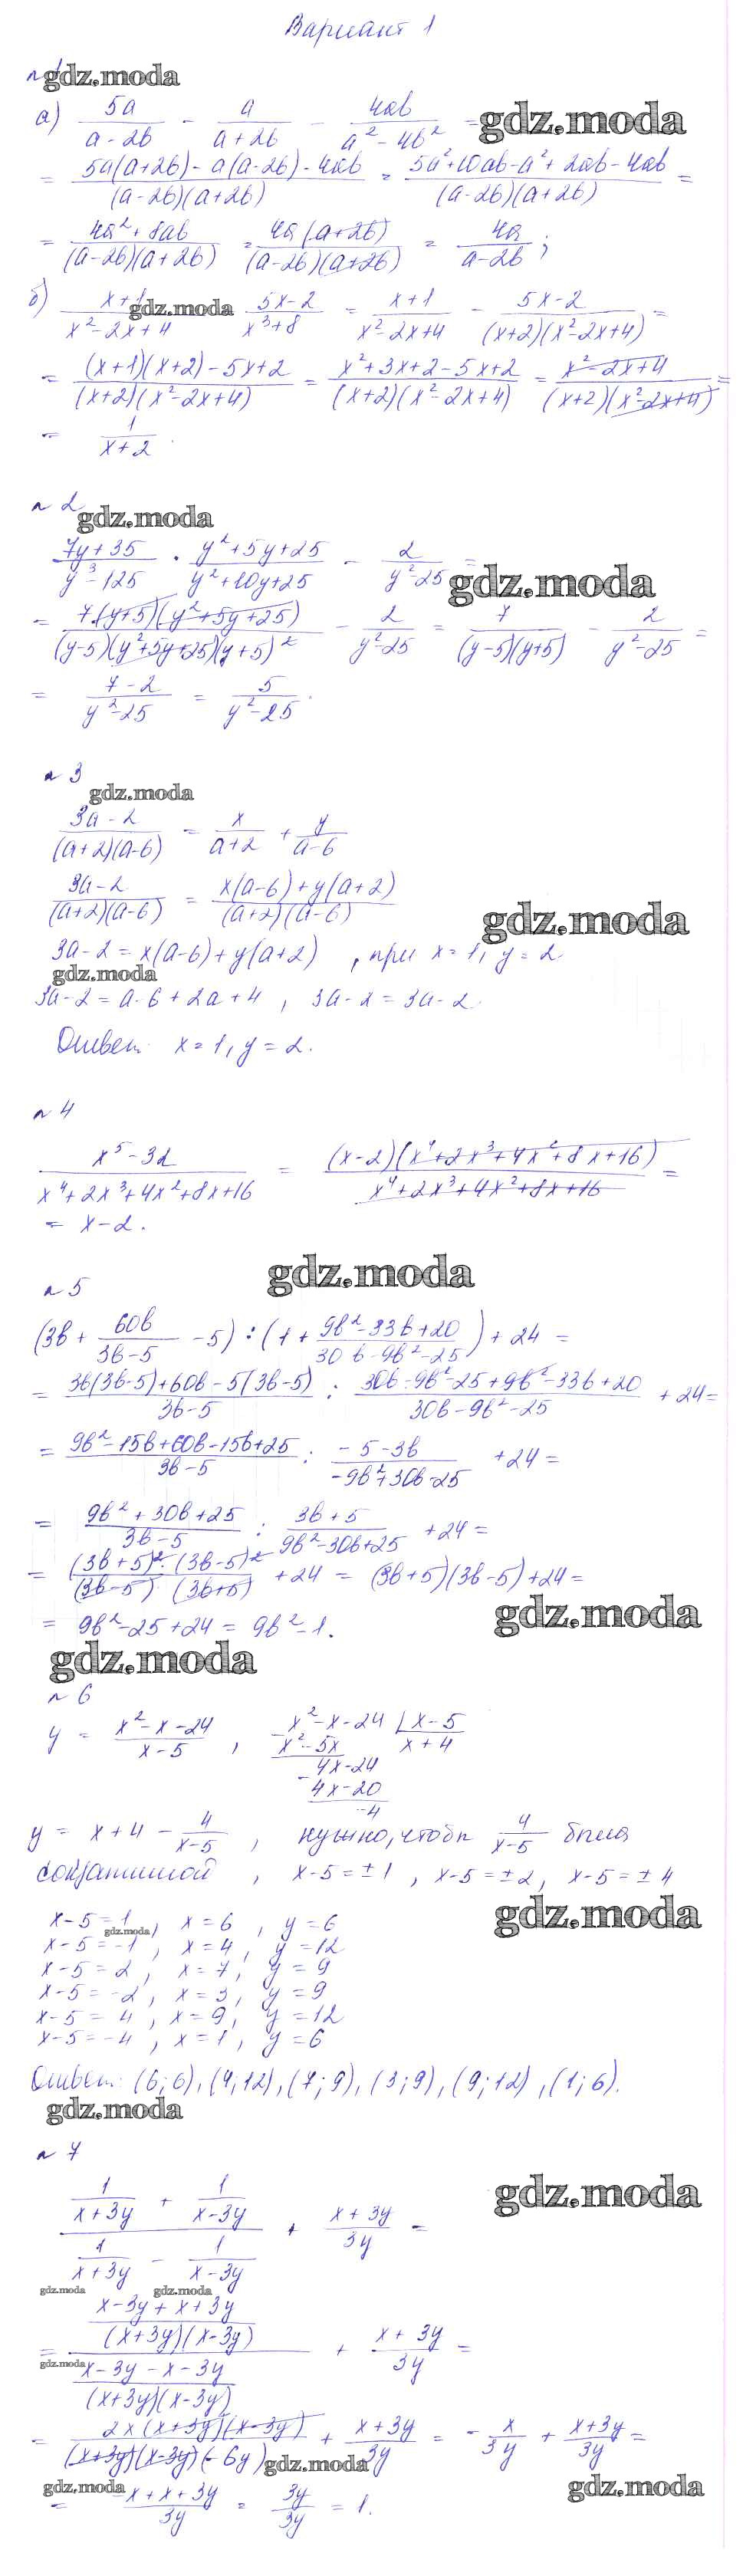 Вариант 1
n 1
gdz.moda
а) 5a/(a-2b) - a/(a+2b) - 4ab/(a²-4b²) =
gdz.moda
= (5a(a+2b)-a(a-2b)-4ab)/((a-2b)(a+2b)) = (5a²+10ab-a²+2ab-4ab)/((a-2b)(a+2b)) =
= (4a²+8ab)/((a-2b)(a+2b)) = (4a(a+2b))/((a-2b)(a+2b)) = 4a/(a-2b);
б) (x+1)/(x²-2x+4) gdz.moda (5x-2)/(x³+8) = (x+1)/(x²-2x+4) - (5x-2)/((x+2)(x²-2x+4)) =
= ((x+1)(x+2)-5x+2)/((x+2)(x²-2x+4)) = (x²+3x+2-5x+2)/((x+2)(x²-2x+4)) = (x²-2x+4)/((x+2)(x²-2x+4)) =
= 1/(x+2).
n 2
gdz.moda
(7y+35)/(y³-125) · (y²+5y+25)/(y²+10y+25) - 2/(y²-25) =
gdz.moda
= (7·(y+5)(y²+5y+25))/((y-5)(y²+5y+25)(y+5)²) - 2/(y²-25) = 7/((y-5)(y+5)) - 2/(y²-25) =
= (7-2)/(y²-25) = 5/(y²-25).
n 3
gdz.moda
(3a-2)/((a+2)(a-6)) = x/(a+2) + y/(a-6)
(3a-2)/((a+2)(a-6)) = (x(a-6)+y(a+2))/((a+2)(a-6))
gdz.moda
3a-2 = x(a-6)+y(a+2), при x=1, y=2
gdz.moda
3a-2 = a-6+2a+4, 3a-2 = 3a-2.
Ответ: x=1, y=2.
n 4
(x⁵-32)/(x⁴+2x³+4x²+8x+16) = ((x-2)(x⁴+2x³+4x²+8x+16))/(x⁴+2x³+4x²+8x+16) =
= x-2.
gdz.moda
n 5
(3b + 60b/(3b-5) - 5) : (1 + (9b²-33b+20)/(30b-9b²-25)) + 24 =
= (3b(3b-5)+60b-5(3b-5))/(3b-5) : (30b-9b²-25+9b²-33b+20)/(30b-9b²-25) + 24 =
= (9b²-15b+60b-15b+25)/(3b-5) : (-5-3b)/(-9b²+30b-25) + 24 =
= (9b²+30b+25)/(3b-5) : (3b+5)/(9b²-30b+25) + 24 =
= ((3b+5)²·(3b-5)²)/((3b-5)·(3b+5)) + 24 = (3b+5)(3b-5)+24 =
gdz.moda
= 9b²-25+24 = 9b²-1.
gdz.moda
n 6
y = (x²-x-24)/(x-5), x²-x-24 | x-5
x²-5x x+4
4x-24
4x-20
-4
y = x+4 - 4/(x-5), нужно, чтобы 4/(x-5) была
сократимой, x-5=±1, x-5=±2, x-5=±4
gdz.moda
x-5=1, x=6, y=6
gdz.moda
x-5=-1, x=4, y=12
x-5=2, x=7, y=9
x-5=-2, x=3, y=9
x-5=4, x=9, y=12
x-5=-4, x=1, y=6
Ответ: (6;6), (4;12), (7;9), (3;9), (9;12), (1;6).
gdz.moda
n 7
gdz.moda
(1/(x+3y) + 1/(x-3y))/(1/(x+3y) - 1/(x-3y)) + (x+3y)/3y =
gdz.moda gdz.moda
= ((x-3y+x+3y)/((x+3y)(x-3y)))/((x-3y-x-3y)/((x+3y)(x-3y))) + (x+3y)/3y =
gdz.moda
= (2x(x+3y)(x-3y))/((x+3y)(x-3y)(-6y)) + (x+3y)/3y = -x/3y + (x+3y)/3y =
gdz.moda
gdz.moda gdz.moda
= (-x+x+3y)/3y = 3y/3y = 1.